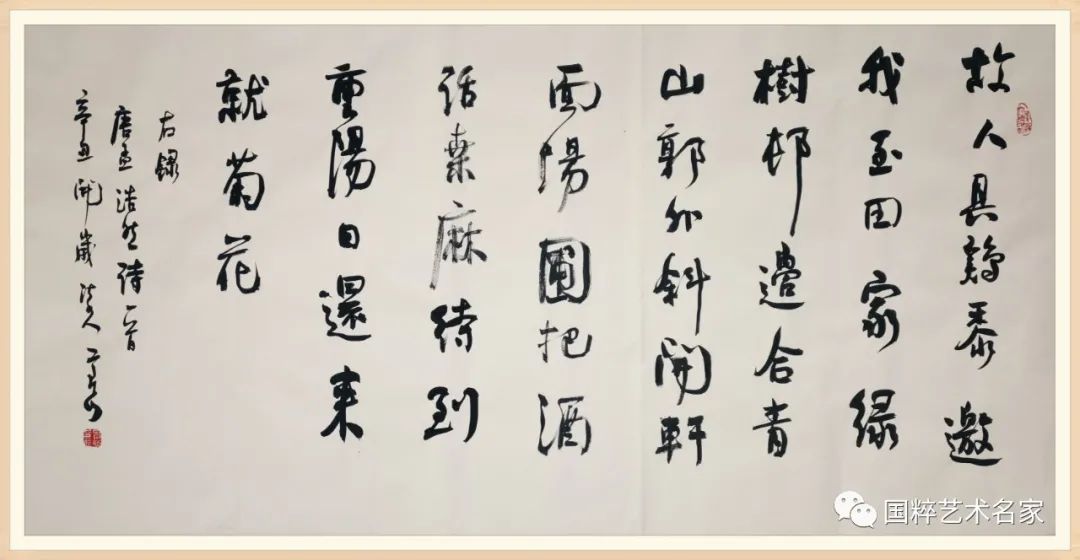 故人具鷄黍邀
我至田家緑
樹邨邊合青
山郭外斜開軒
面場圃把酒
話桑麻待到
重陽日還來
就菊花
右録
唐孟浩然詩一首
辛丑開歲
国粹艺术名家